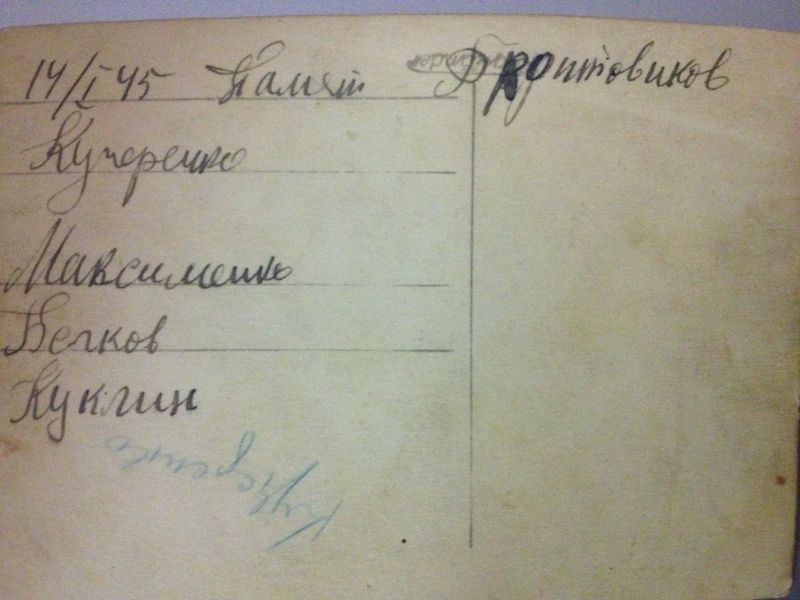 14/I 45 Памят Фронтовиков
Кучеренко
Максименко
Бечков
Куклин
Кучеренко